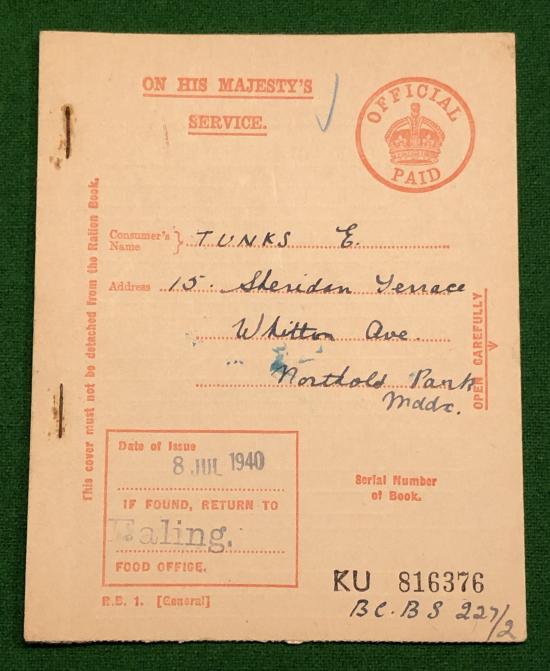 ON HIS MAJESTY'S
SERVICE.
OFFICIAL
PAID
Consumer's
Name
TUNKS E.
Address 15. Sheridan Terrace
Whitton Ave.
Northold Park
Mddx.
OPEN CAREFULLY
This cover must not be detached from the Ration Book.
Date of Issue
8 JUL 1940
IF FOUND, RETURN TO
Ealing.
FOOD OFFICE.
Serial Number
of Book.
R.B. 1. [General]
KU 816376
BC. BS 227/2